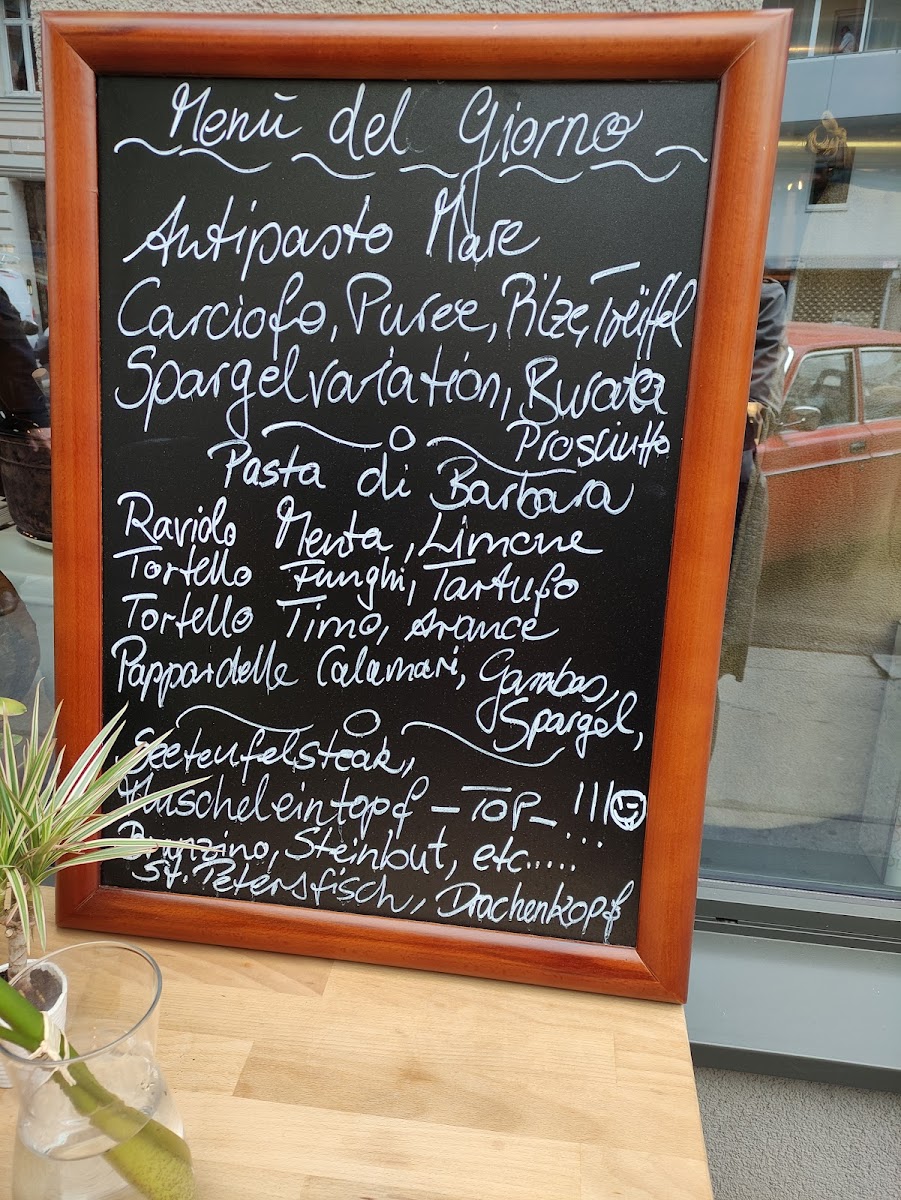 Menù del Giorno
Antipasto Mare
Carciofo, Puree, Pilze, Trüffel
Spargelvariation, Burata
Prosciutto
Pasta di Barbara
Raviolo Menta, Limone
Tortello Funghi, Tartufo
Tortello Timo, Arance
Pappardelle Calamari, Gambas,
Spargel,
Seeteufelsteak,
Muscheleintopf - TOP - !!!
Branzino, Steinbut, etc.....
St. Petersfisch, Drachenkopf